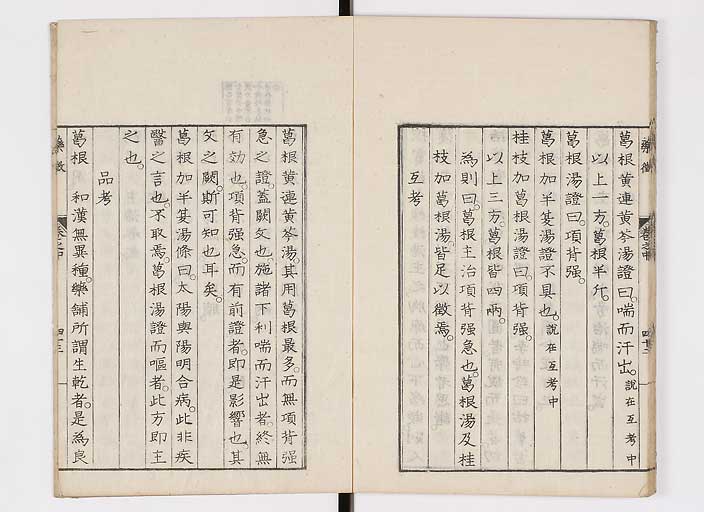 葛根黃連黃芩湯證曰。喘而汗出。說在互考中
以上一方。葛根半斤。
葛根湯證曰。項背强。
葛根加半夏湯證不具也。說在互考中
桂枝加葛根湯證曰。項背强。
以上三方。葛根皆四兩。
爲則曰。葛根主治項背强急也。葛根湯及桂
枝加葛根湯。皆足以徵焉。
互考
藥徵
卷之中
四十三
葛根黃連黃芩湯。其用葛根最多。而無項背强
急之證。蓋闕文也。施諸下利喘而汗出者。終無
有効也。項背强急。而有前證者。卽是影響也。其
文之闕。斯可知也耳矣。
葛根加半夏湯條曰。太陽與陽明合病。此非疾
醫之言也。不取焉。葛根湯證而嘔者。此方卽主
之也。
品考
葛根 和漢無異種。藥舖所謂生乾者。是爲良
藥徵
卷之中
四十三